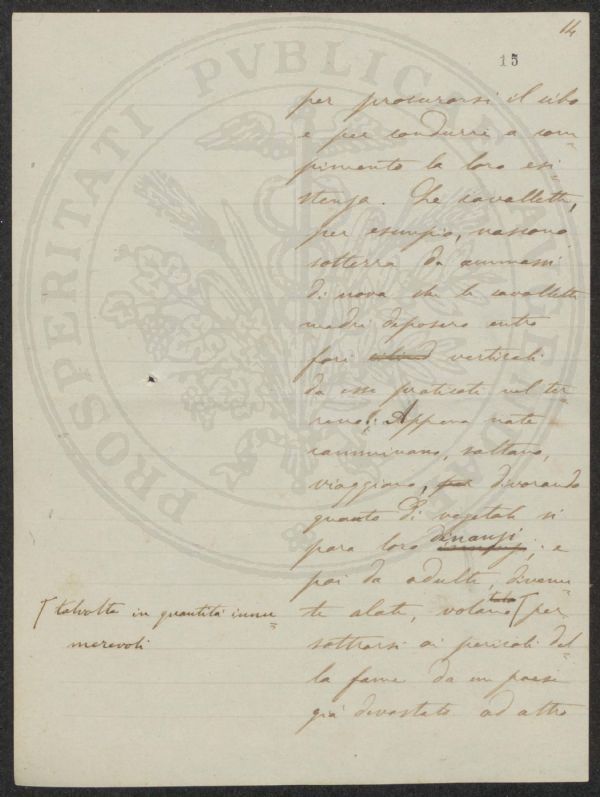 14
15
PROSPERITATI PVBLICAE AVGENDAE
per procurarsi il cibo
e per condurre a com-
pimento la loro esi-
stenza. Le cavallette,
per esempio, nascono
sotterra da ammassi
di uova che le cavallette
madri deposero entro
fori verticali
da esse praticati nel ter-
reno; Appena nate
camminano, saltano,
viaggiano, divorando
quanto di vegetale si
para loro dinanzi; e
poi da adulte, divenu-
te alate, volano [per
sottrarsi ai pericoli del-
la fame da un paese
già devastato ad altro
[talvolta in quantità innu-
merevoli